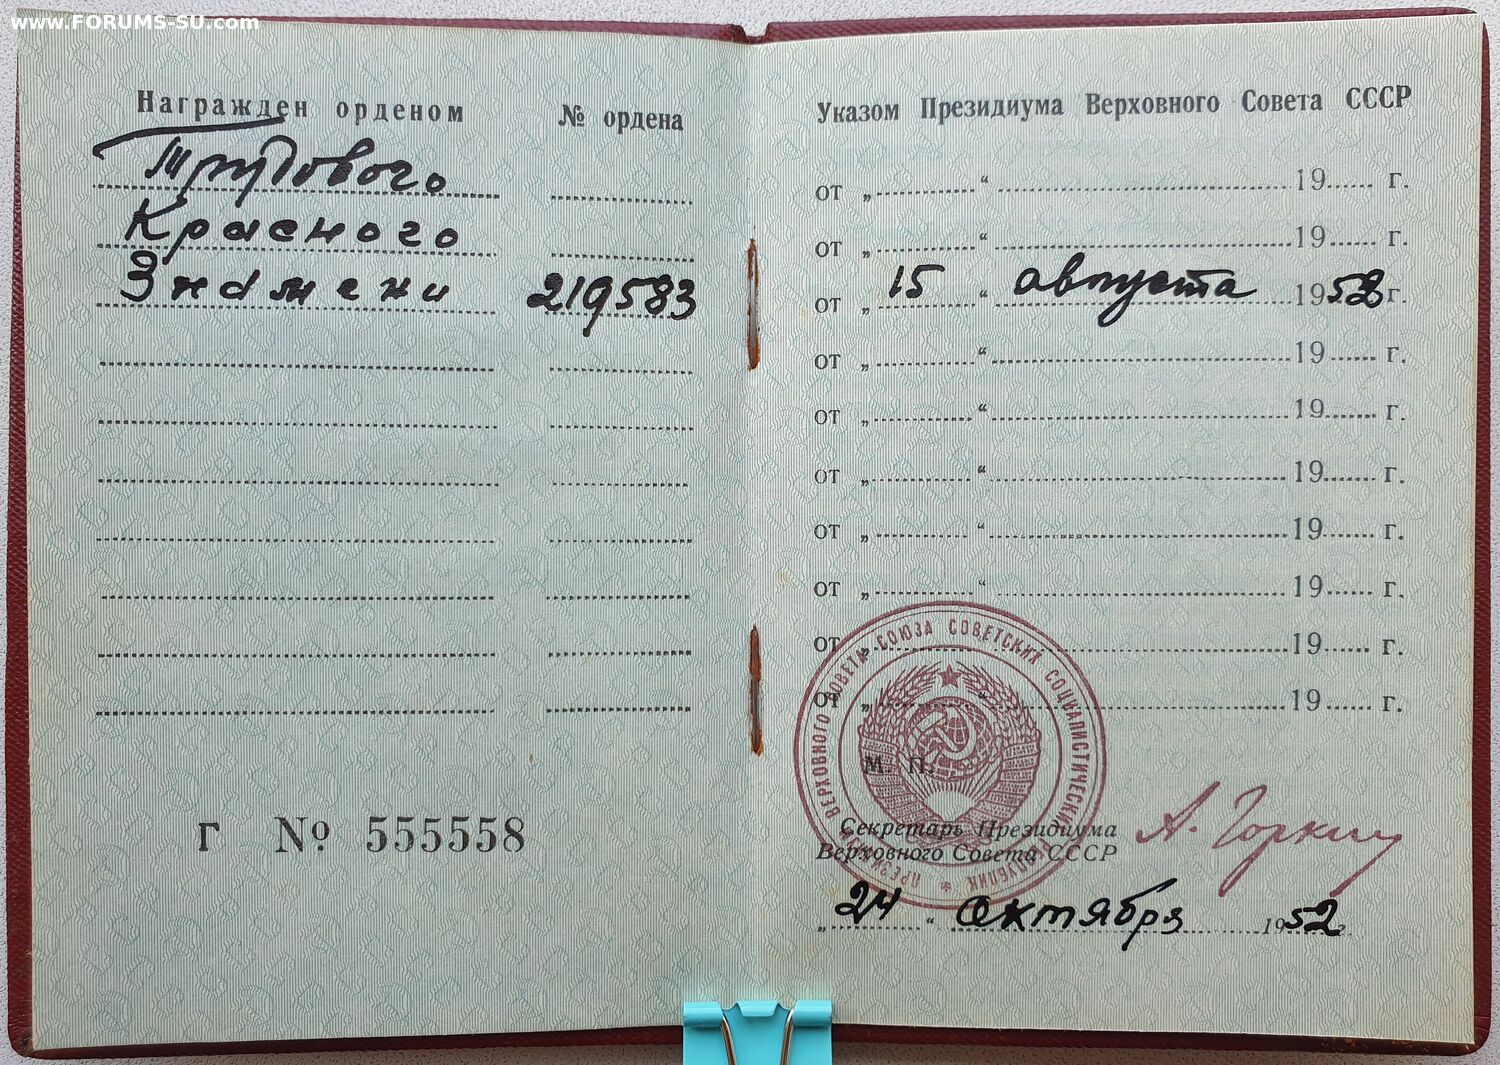 www.FORUMS-SU.com
Награжден орденом № ордена
Трудового
Красного
Знамени 219583
Г № 555558
Указом Президиума Верховного Совета СССР
от „ “ 19 г.
от „ “ 19 г.
от „ 15 “ августа 1952 г.
от „ “ 19 г.
от „ “ 19 г.
от „ “ 19 г.
от „ “ 19 г.
от „ “ 19 г.
от „ “ 19 г.
от „ “ 19 г.
ПРЕЗИДИУМ ВЕРХОВНОГО СОВЕТА СОЮЗА СОВЕТСКИХ СОЦИАЛИСТИЧЕСКИХ РЕСПУБЛИК
М. П.
Секретарь Президиума
Верховного Совета СССР
А. Горкин
„ 24 “ октября 1952 г.